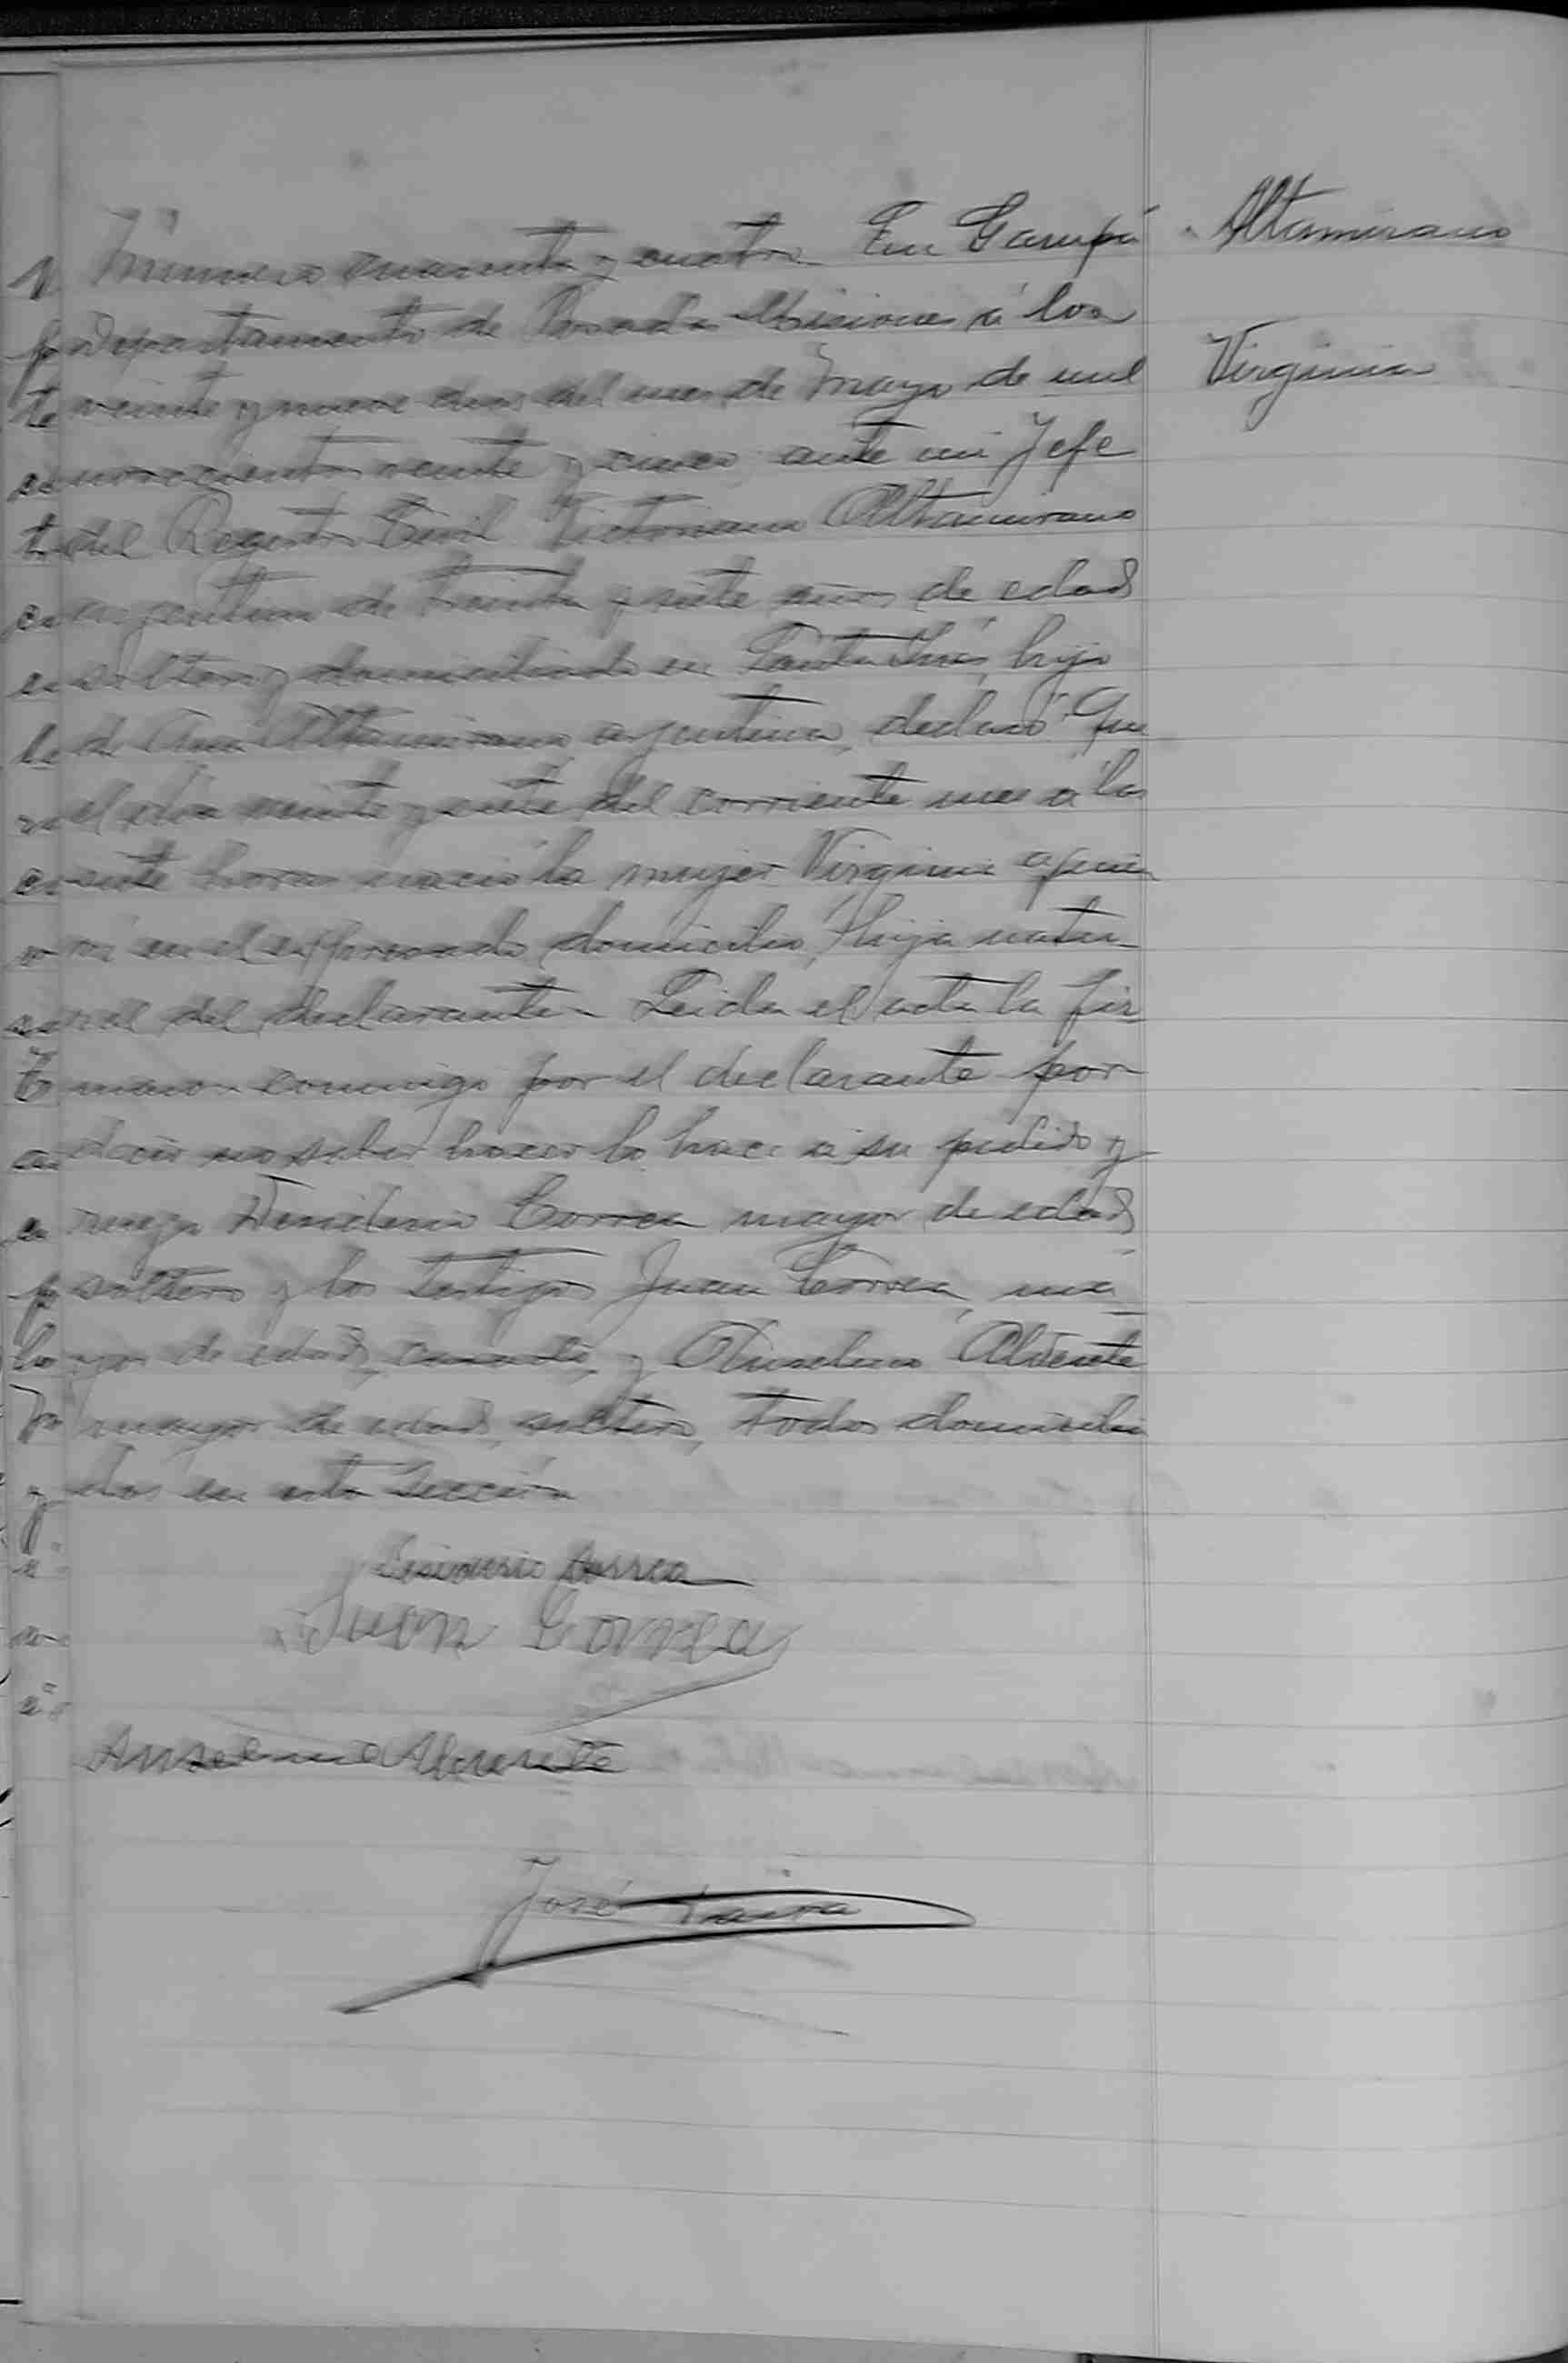 Altamirano
Virginia
Número cuarenta y cuatro En Garupá
Departamento de Posadas Misiones á los
veinte y nueve dias del mes de Mayo de mil
novecientos veinte y cinco, ante mi Jefe
del Registro Civil Victoriano Altamirano
argentino de treinta y siete años de edad
soltero y domiciliado en Santa Inés, hijo
de Ana Altamirano, argentina, declaró: Que
el dia veinte y siete del corriente mes á las
siete horas nació la mujer Virginia a quien
en el expresado domicilio, hija natu-
ral del declarante. Leida el acta la fir-
maron conmigo por el declarante por
decir no saber hacerlo hace á su pedido y
ruego Desiderio Correa mayor de edad
soltero y los testigos Juan Correa, ma-
yor de edad, casado, y Anselmo Alvente
mayor de edad, soltero, todos domicilia
dos en esta Sección
Desiderio Correa
Juan Correa
José